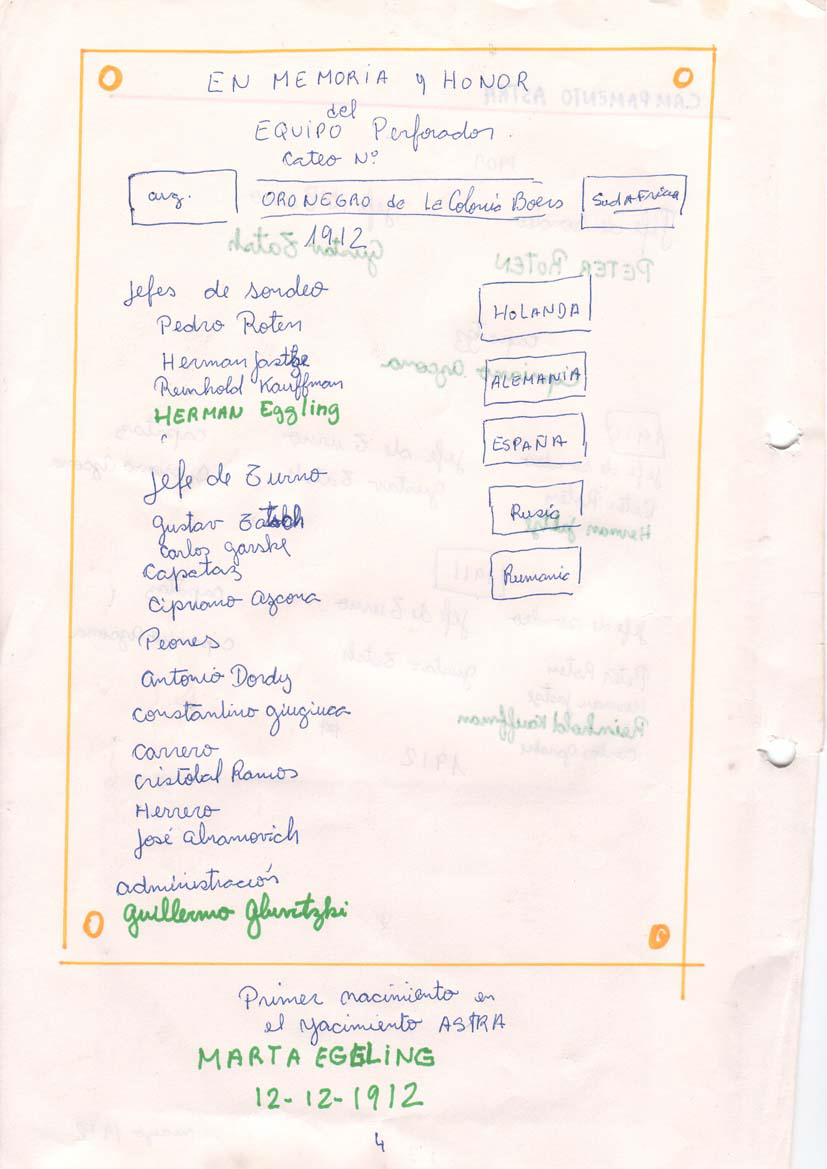 EN MEMORIA y HONOR
del
EQUIPO Perforador.
Cateo Nº
arg.
ORO NEGRO de La Colonia Boers
SudAFrica
1912
Jefes de sondeo
Pedro Roten
Herman Jastge
Reinhold Kauffman
HERMAN Eggling
HOLANDA
ALEMANIA
ESPAÑA
Rusia
Rumania
Jefe de Turno
gustav
Carlos garske
Capataz
Cipriano Azcona
Peones
Antonio Dordy
Constantino giugiuca
Carrero
Cristobal Ramos
Herrero
José Abramovich
administración
guillermo
Primer nacimiento en
el yacimiento ASTRA
MARTA EGGLING
12-12-1912
4